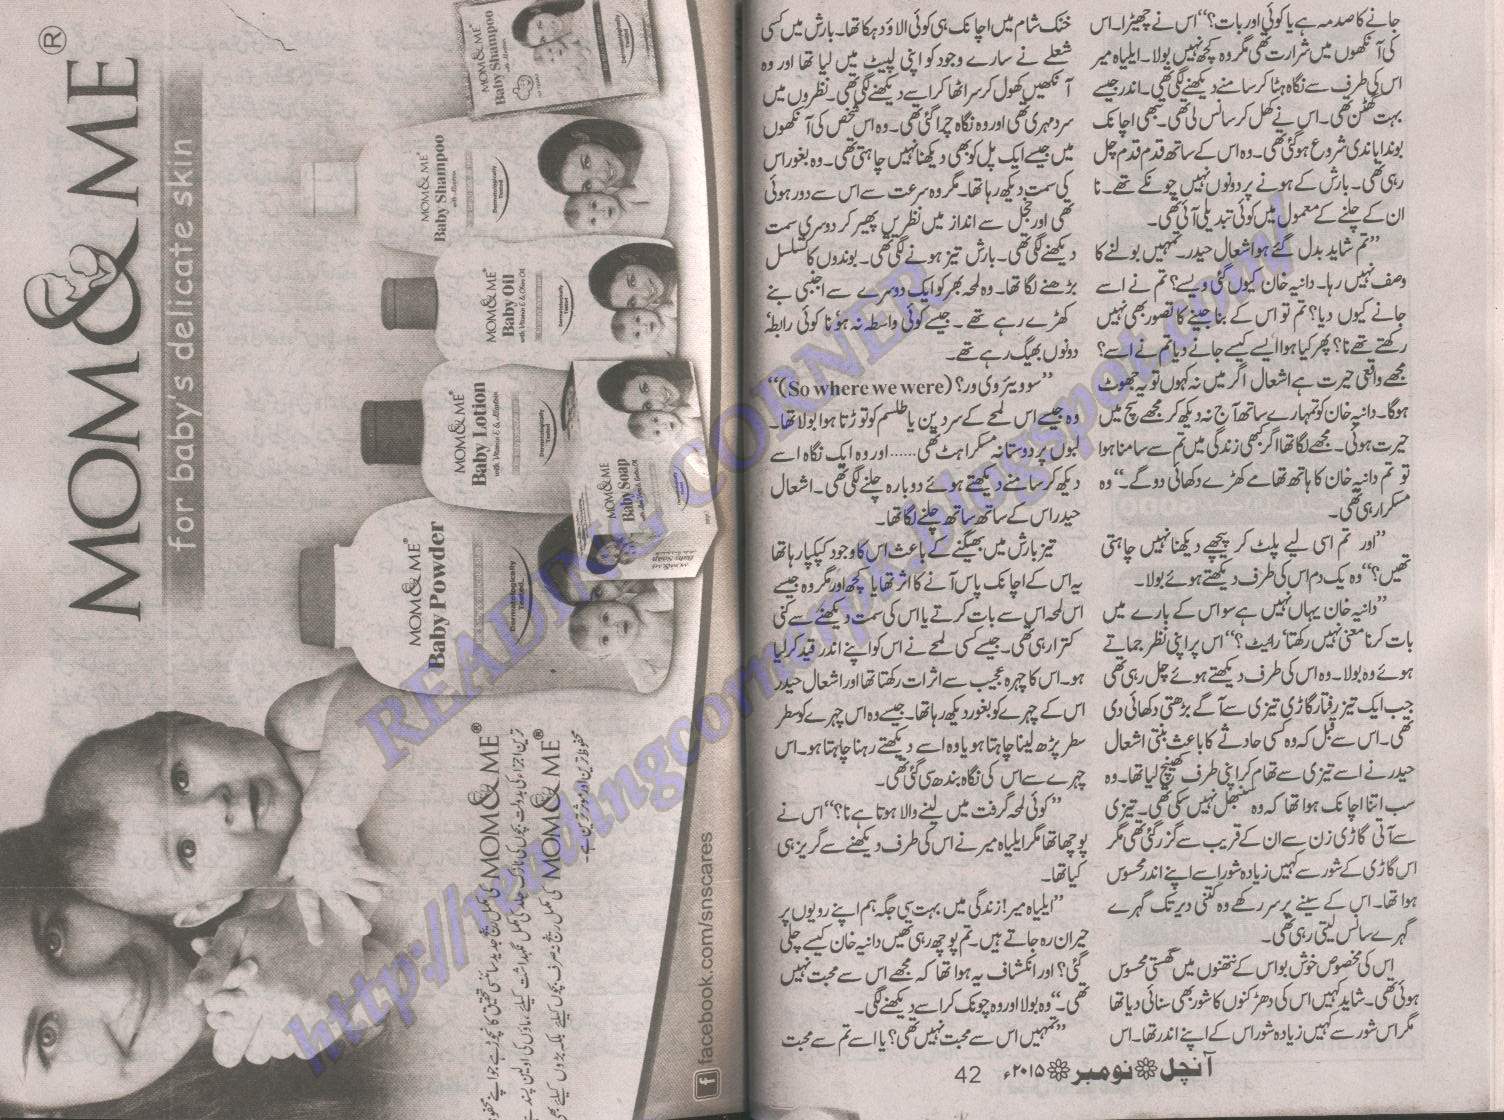 جانے کا صدمہ ہے یا کوئی اور بات؟“ اس نے چھیڑا۔ اس
کی آنکھوں میں شرارت تھی مگر وہ کچھ نہیں بولا۔ ایلیاہ میر
اس کی طرف سے نگاہ ہٹا کر سامنے دیکھنے لگی تھی۔ اندر جیسے
بہت گھٹن تھی۔ اس نے کھل کر سانس لی تھی۔ تبھی اچانک
بوندا باندی شروع ہوگئی تھی۔ وہ اس کے ساتھ قدم قدم چل
رہی تھی۔ بارش کے ہونے پر دونوں نہیں چونکے تھے۔ نا
ان کے چلنے کے معمول میں کوئی تبدیلی آئی تھی۔
”تم شاید بدل گئے ہو اشعال حیدر۔ تمہیں بولنے کا
وصف نہیں رہا۔ دانیہ خان کیوں گئی ویسے؟ تم نے اسے
جانے کیوں دیا؟ تم تو اس کے بنا جینے کا تصور بھی نہیں
رکھتے تھے نا؟ پھر کیا ہوا ایسے کیسے جانے دیا تم نے اسے؟
مجھے واقعی حیرت ہے اشعال اگر میں نہ کہوں تو یہ جھوٹ
ہوگا۔ دانیہ خان کو تمہارے ساتھ آج نہ دیکھ کر مجھے سچ میں
حیرت ہوئی۔ مجھے لگا تھا اگر کبھی زندگی میں تم سے سامنا ہوا
تو تم دانیہ خان کا ہاتھ تھامے کھڑے دکھائی دو گے۔“ وہ
مسکرا رہی تھی۔
”اور تم اسی لیے پلٹ کر پیچھے دیکھنا نہیں چاہتی
تھیں؟“ وہ یک دم اس کی طرف دیکھتے ہوئے بولا۔
”دانیہ خان یہاں نہیں ہے سو اس کے بارے میں
بات کرنا معنی نہیں رکھتا‘ رائیٹ؟“ اس پر اپنی نظر جماتے
ہوئے وہ بولا۔ وہ اس کی طرف دیکھتے ہوئے چل رہی تھی
جب ایک تیز رفتار گاڑی تیزی سے آگے بڑھتی دکھائی دی
تھی۔ اس سے قبل کہ وہ کسی حادثے کا باعث بنتی اشعال
حیدر نے اسے تیزی سے تھام کر اپنی طرف کھینچ لیا تھا۔ وہ
سب اتنا اچانک ہوا تھا کہ وہ سنبھل نہیں سکی تھی۔ تیزی
سے آتی گاڑی زن سے ان کے قریب سے گزر گئی تھی مگر
اس گاڑی کے شور سے کہیں زیادہ شور اسے اپنے اندر محسوس
ہوا تھا۔ اس کے سینے پر سر رکھے وہ کتنی دیر تک گہرے
گہرے سانس لیتی رہی تھی۔
اس کی مخصوص خوش بو اس کے نتھنوں میں گھستی محسوس
ہوئی تھی۔ شاید کہیں اس کی دھڑکنوں کا شور بھی سنائی دیا تھا
مگر اس شور سے کہیں زیادہ شور اس کے اپنے اندر تھا۔ اس
خنک شام میں اچانک ہی کوئی الاؤ دہکا تھا۔ بارش میں کسی
شعلے نے سارے وجود کو اپنی لپیٹ میں لیا تھا اور وہ
آنکھیں کھول کر سر اٹھا کر اسے دیکھنے لگی تھی۔ نظروں میں
سرد مہری تھی اور وہ نگاہ چرا گئی تھی۔ وہ اس شخص کی آنکھوں
میں جیسے ایک پل کو بھی دیکھنا نہیں چاہتی تھی۔ وہ بغور اس
کی سمت دیکھ رہا تھا۔ مگر وہ سرعت سے اس سے دور ہوئی
تھی اور خجل سے انداز میں نظریں پھیر کر دوسری سمت
دیکھنے لگی تھی۔ بارش تیز ہونے لگی تھی۔ بوندوں کا تسلسل
بڑھنے لگا تھا۔ وہ لمحہ بھر کو ایک دوسرے سے اجنبی بنے
کھڑے رہے تھے۔ جیسے کوئی واسطہ نہ ہو‘ نا کوئی رابطہ‘
دونوں بھیگ رہے تھے۔
”سو ویئر وی ور؟ (So where we were)“
وہ جیسے اس لمحے کے سرد پن یا طلسم کو توڑتا ہوا بولا تھا۔
لبوں پر دوستانہ مسکراہٹ تھی...... اور وہ ایک نگاہ اسے
دیکھ کر سامنے دیکھتے ہوئے دوبارہ چلنے لگی تھی۔ اشعال
حیدر اس کے ساتھ ساتھ چلنے لگا تھا۔
تیز بارش میں بھیگنے کے باعث اس کا وجود کپکپا رہا تھا
یہ اس کے اچانک پاس آنے کا اثر تھا یا کچھ اور مگر وہ جیسے
اس لمحہ اس سے بات کرتے یا اس کی سمت دیکھنے سے کنی
کترا رہی تھی۔ جیسے کسی لمحے نے اس کو اپنے اندر قید کرلیا
ہو۔ اس کا چہرہ عجیب سے اثرات رکھتا تھا اور اشعال حیدر
اس کے چہرے کو بغور دیکھ رہا تھا۔ جیسے وہ اس چہرے کو سطر
سطر پڑھ لینا چاہتا ہو یا وہ اسے دیکھتے رہنا چاہتا ہو۔ اس
چہرے سے اس کی نگاہ بندھ سی گئی تھی۔
”کوئی لمحہ گرفت میں لینے والا ہوتا ہے نا؟“ اس نے
پوچھا تھا مگر ایلیاہ میر نے اس کی طرف دیکھنے سے گریز ہی
کیا تھا۔
”ایلیاہ میر! زندگی میں بہت سی جگہ ہم اپنے رویوں پر
حیران رہ جاتے ہیں۔ تم پوچھ رہی تھیں دانیہ خان کیسے چلی
گئی؟ اور انکشاف یہ ہوا تھا کہ مجھے اس سے محبت نہیں
تھی۔“ وہ بولا اور وہ چونک کر اسے دیکھنے لگی۔
”تمہیں اس سے محبت نہیں تھی؟ یا اسے تم سے محبت
آنچل نومبر ۲۰۱۵ء 42
MOM&ME®
for baby's delicate skin
MOM&ME
Baby Shampoo
MOM&ME
Baby Shampoo
Dermatologically Tested
MOM&ME
Baby Oil
with Vitamin E & Olive Oil
MOM&ME
Baby Lotion
Dermatologically Tested
MOM&ME
Baby Soap
MOM&ME
Baby Powder
Dermatologically Tested
MOM&ME®
MOM&ME®
محفوظ ترین اور موثر ترین ہے۔
facebook.com/snscares
READING CORNER
http://readingcornerpk.blogspot.com/